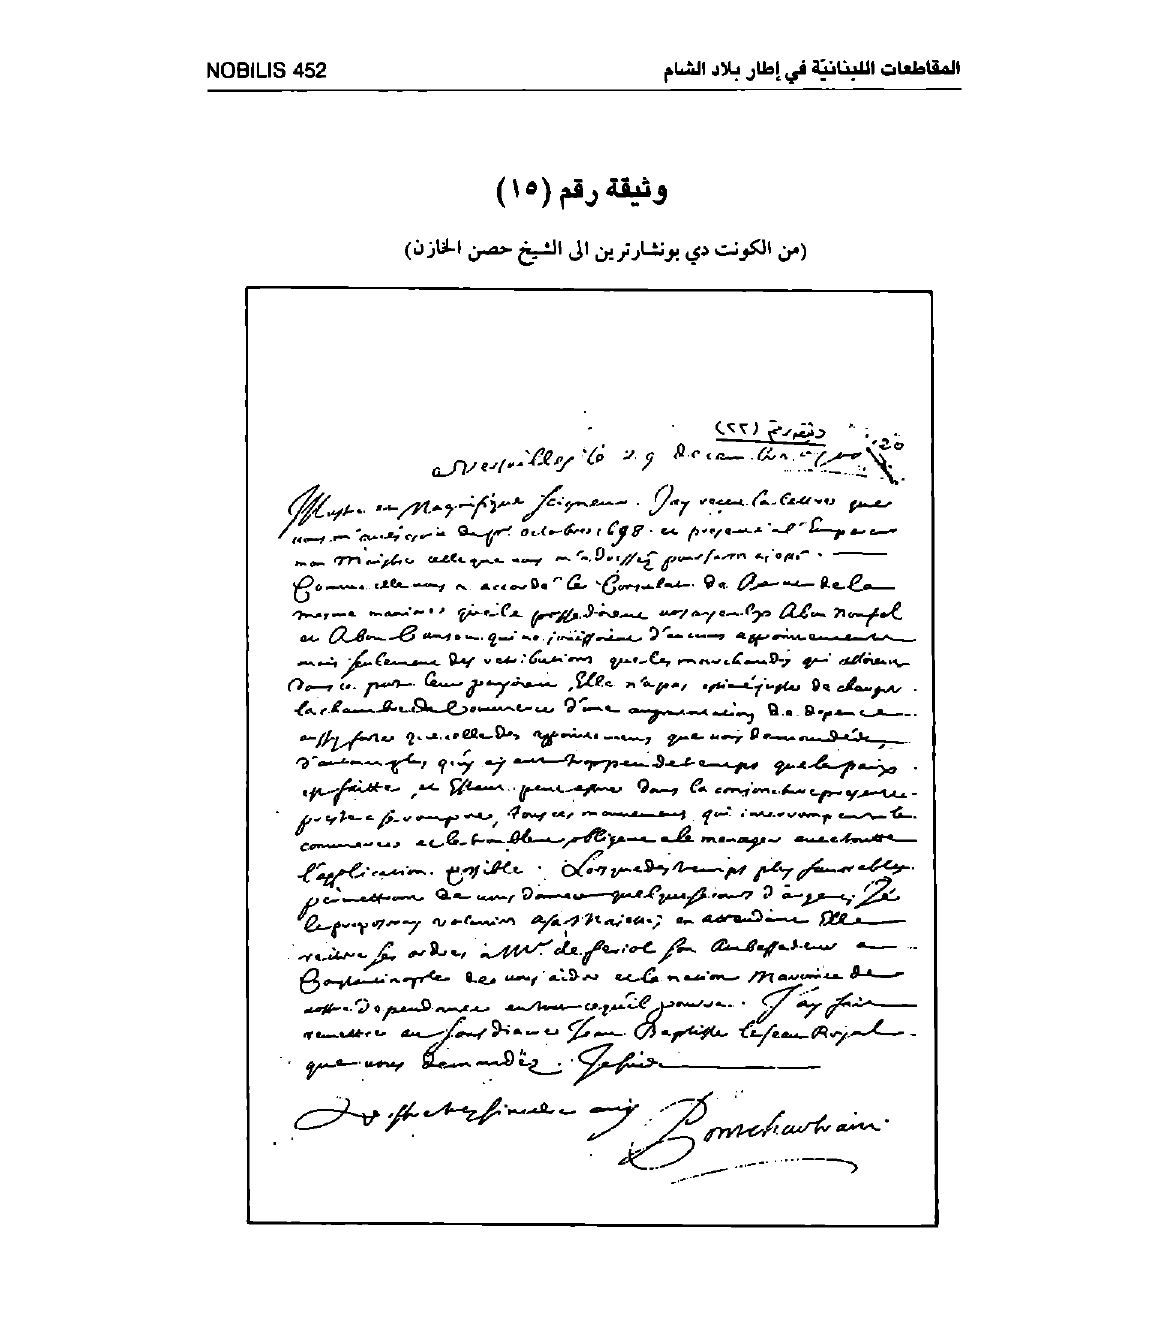 NOBILIS 452
المقاطعات اللبنانيّة في إطار بلاد الشام
وثيقة رقم (١٥)
(من الكونت دي بونشارترين الى الشيخ حصن الخازن)
وثيقة رقم (٢٢)
20
a Versailles le 29 Decembre
Illustre et Magnifique Seigneur. J'ay receu la lettre que
vous m'avés écrite du pr. octobre 1698. et presenté a l'Empereur
mon Maistre celle que vous m'adressez pour
Comme elle vous a accordé le Consulat de de la
mesme maniere que le possedoient vos ayeuls Abou Noufel
et Abou qui ne jouissoient d'aucuns appointements
mais seulement des retributions que les marchands qui
dans ce port leur payoient, Elle n'a pas estimé juste de charger
la chambre du Commerce d'une augmentation de depence
aussy forte que celle des appointemens que vous demandés,
d'autant plus qu'il y a trop peu de temps que la paix
est faitte, et Estant peut estre dans la conjoncture presente
preste a se rompre, tous ces mouvemens qui interrompent le
commerce et le troublent obligent a le menager avec toutte
l'application possible. Lorsque des temps plus favorables
permettront de vous donner quelque secours d'argent, Je
le proposeray volontiers a sa Majesté; en attendant Elle
ses ordres à Mr. de feriol son Ambassadeur a
Constantinople de vous aider et la nation Maronite de
vostre dependance en tout ce qu'il pourra. J'ay fait
remettre au Jean Baptiste le sceau Royal
que vous demandéz. Je suis
Vostre tres sincere amy
Pontchartrain